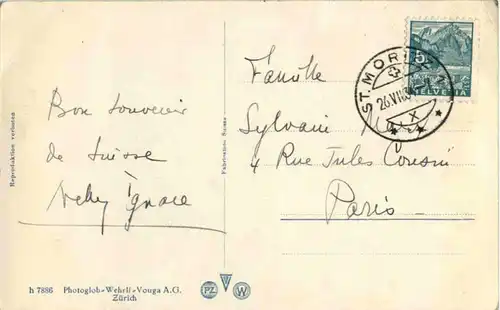 Bon souvenir
de Suisse
Famille
Sylvain
4 Rue Jules Cousin
Paris
ST. MORITZ 1
26.VII
HELVETIA
5
Reproduktion verboten
Fabrication Suisse
h 7886 Photoglob-Wehrli-Vouga A.G.
Zürich
PZ
W